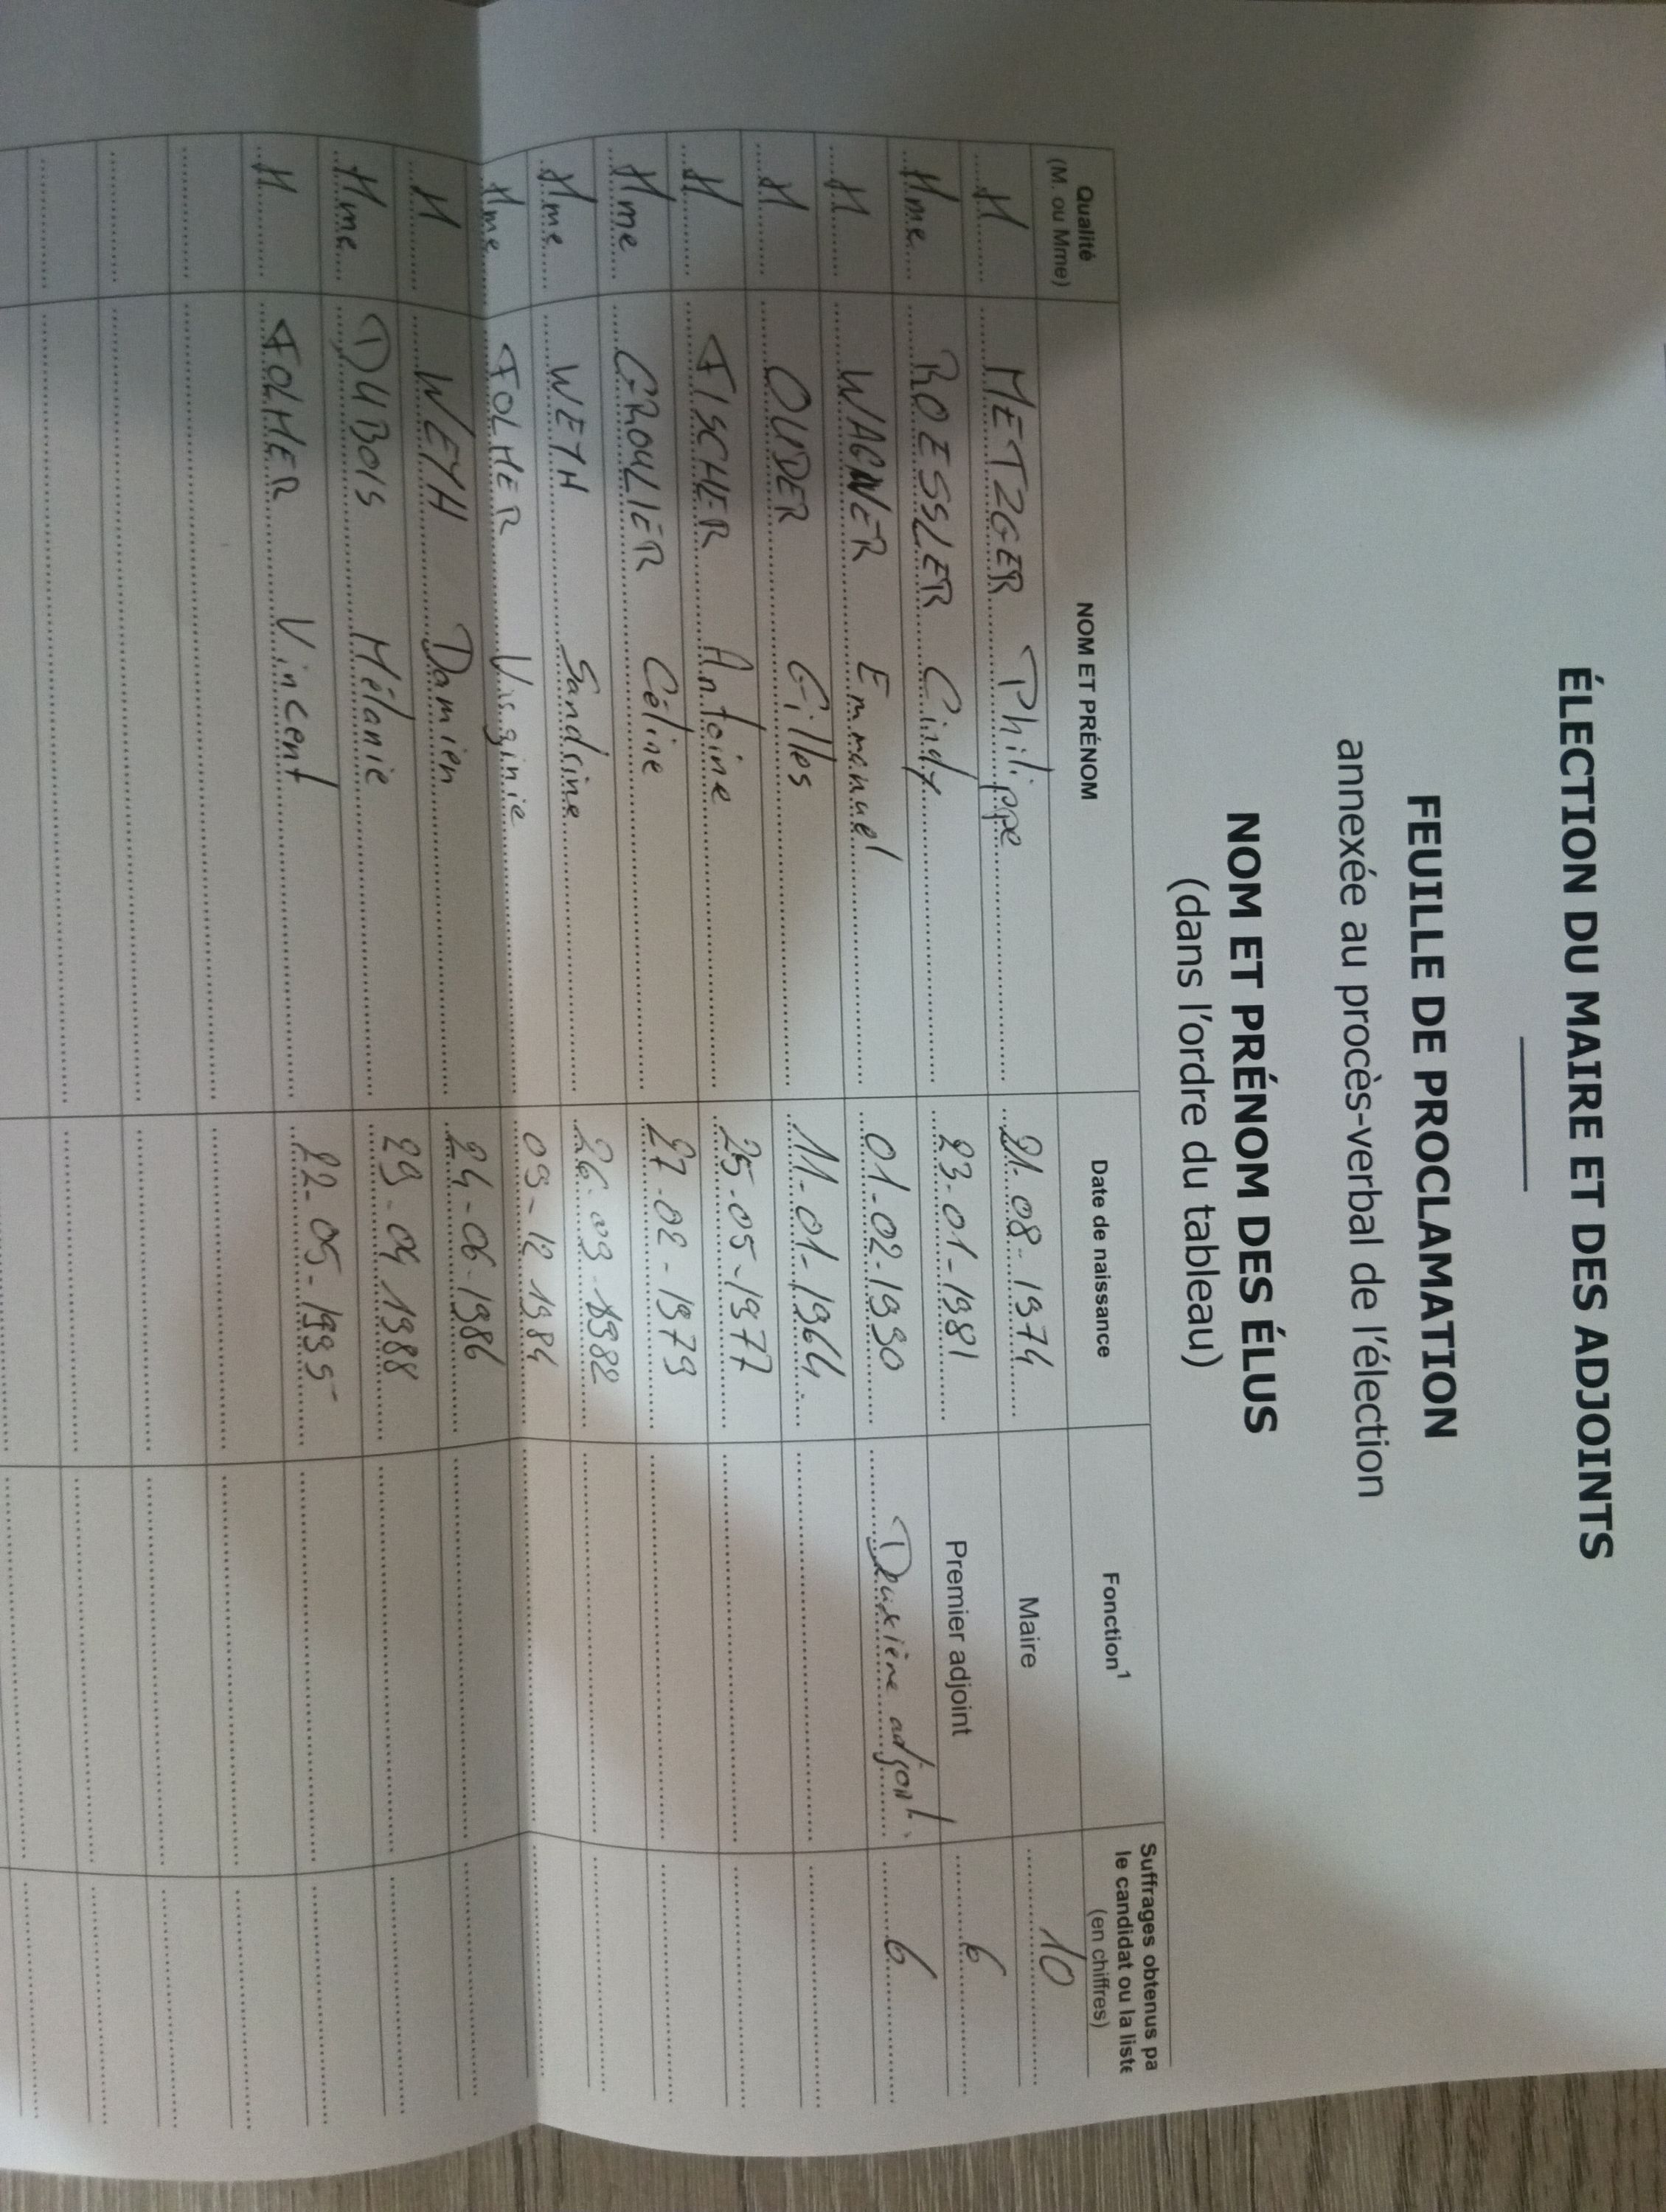 ÉLECTION DU MAIRE ET DES ADJOINTS
FEUILLE DE PROCLAMATION
annexée au procès-verbal de l'élection
NOM ET PRÉNOM DES ÉLUS
(dans l'ordre du tableau)
Qualité (M. ou Mme) NOM ET PRÉNOM Date de naissance Fonction¹ Suffrages obtenus pa le candidat ou la liste (en chiffres)
M METZGER Philippe 21-08-1974 Maire 10
Mme ROESSLER Cindy 23-01-1981 Premier adjoint 6
M WAGNER Emmanuel 01-02-1990 Deuxième adjoint 6
M OUDER Gilles 11-01-1964
M FISCHER Antoine 25-05-1977
Mme GROULIER Céline 27-02-1979
Mme WEYH Sandrine 26-09-1982
Mme FOLMER Virginie 09-12 1984
M WEYH Damien 24-06-1986
Mme DUBOIS Mélanie 29-04 1988
M FOLMER Vincent 22-05-1995